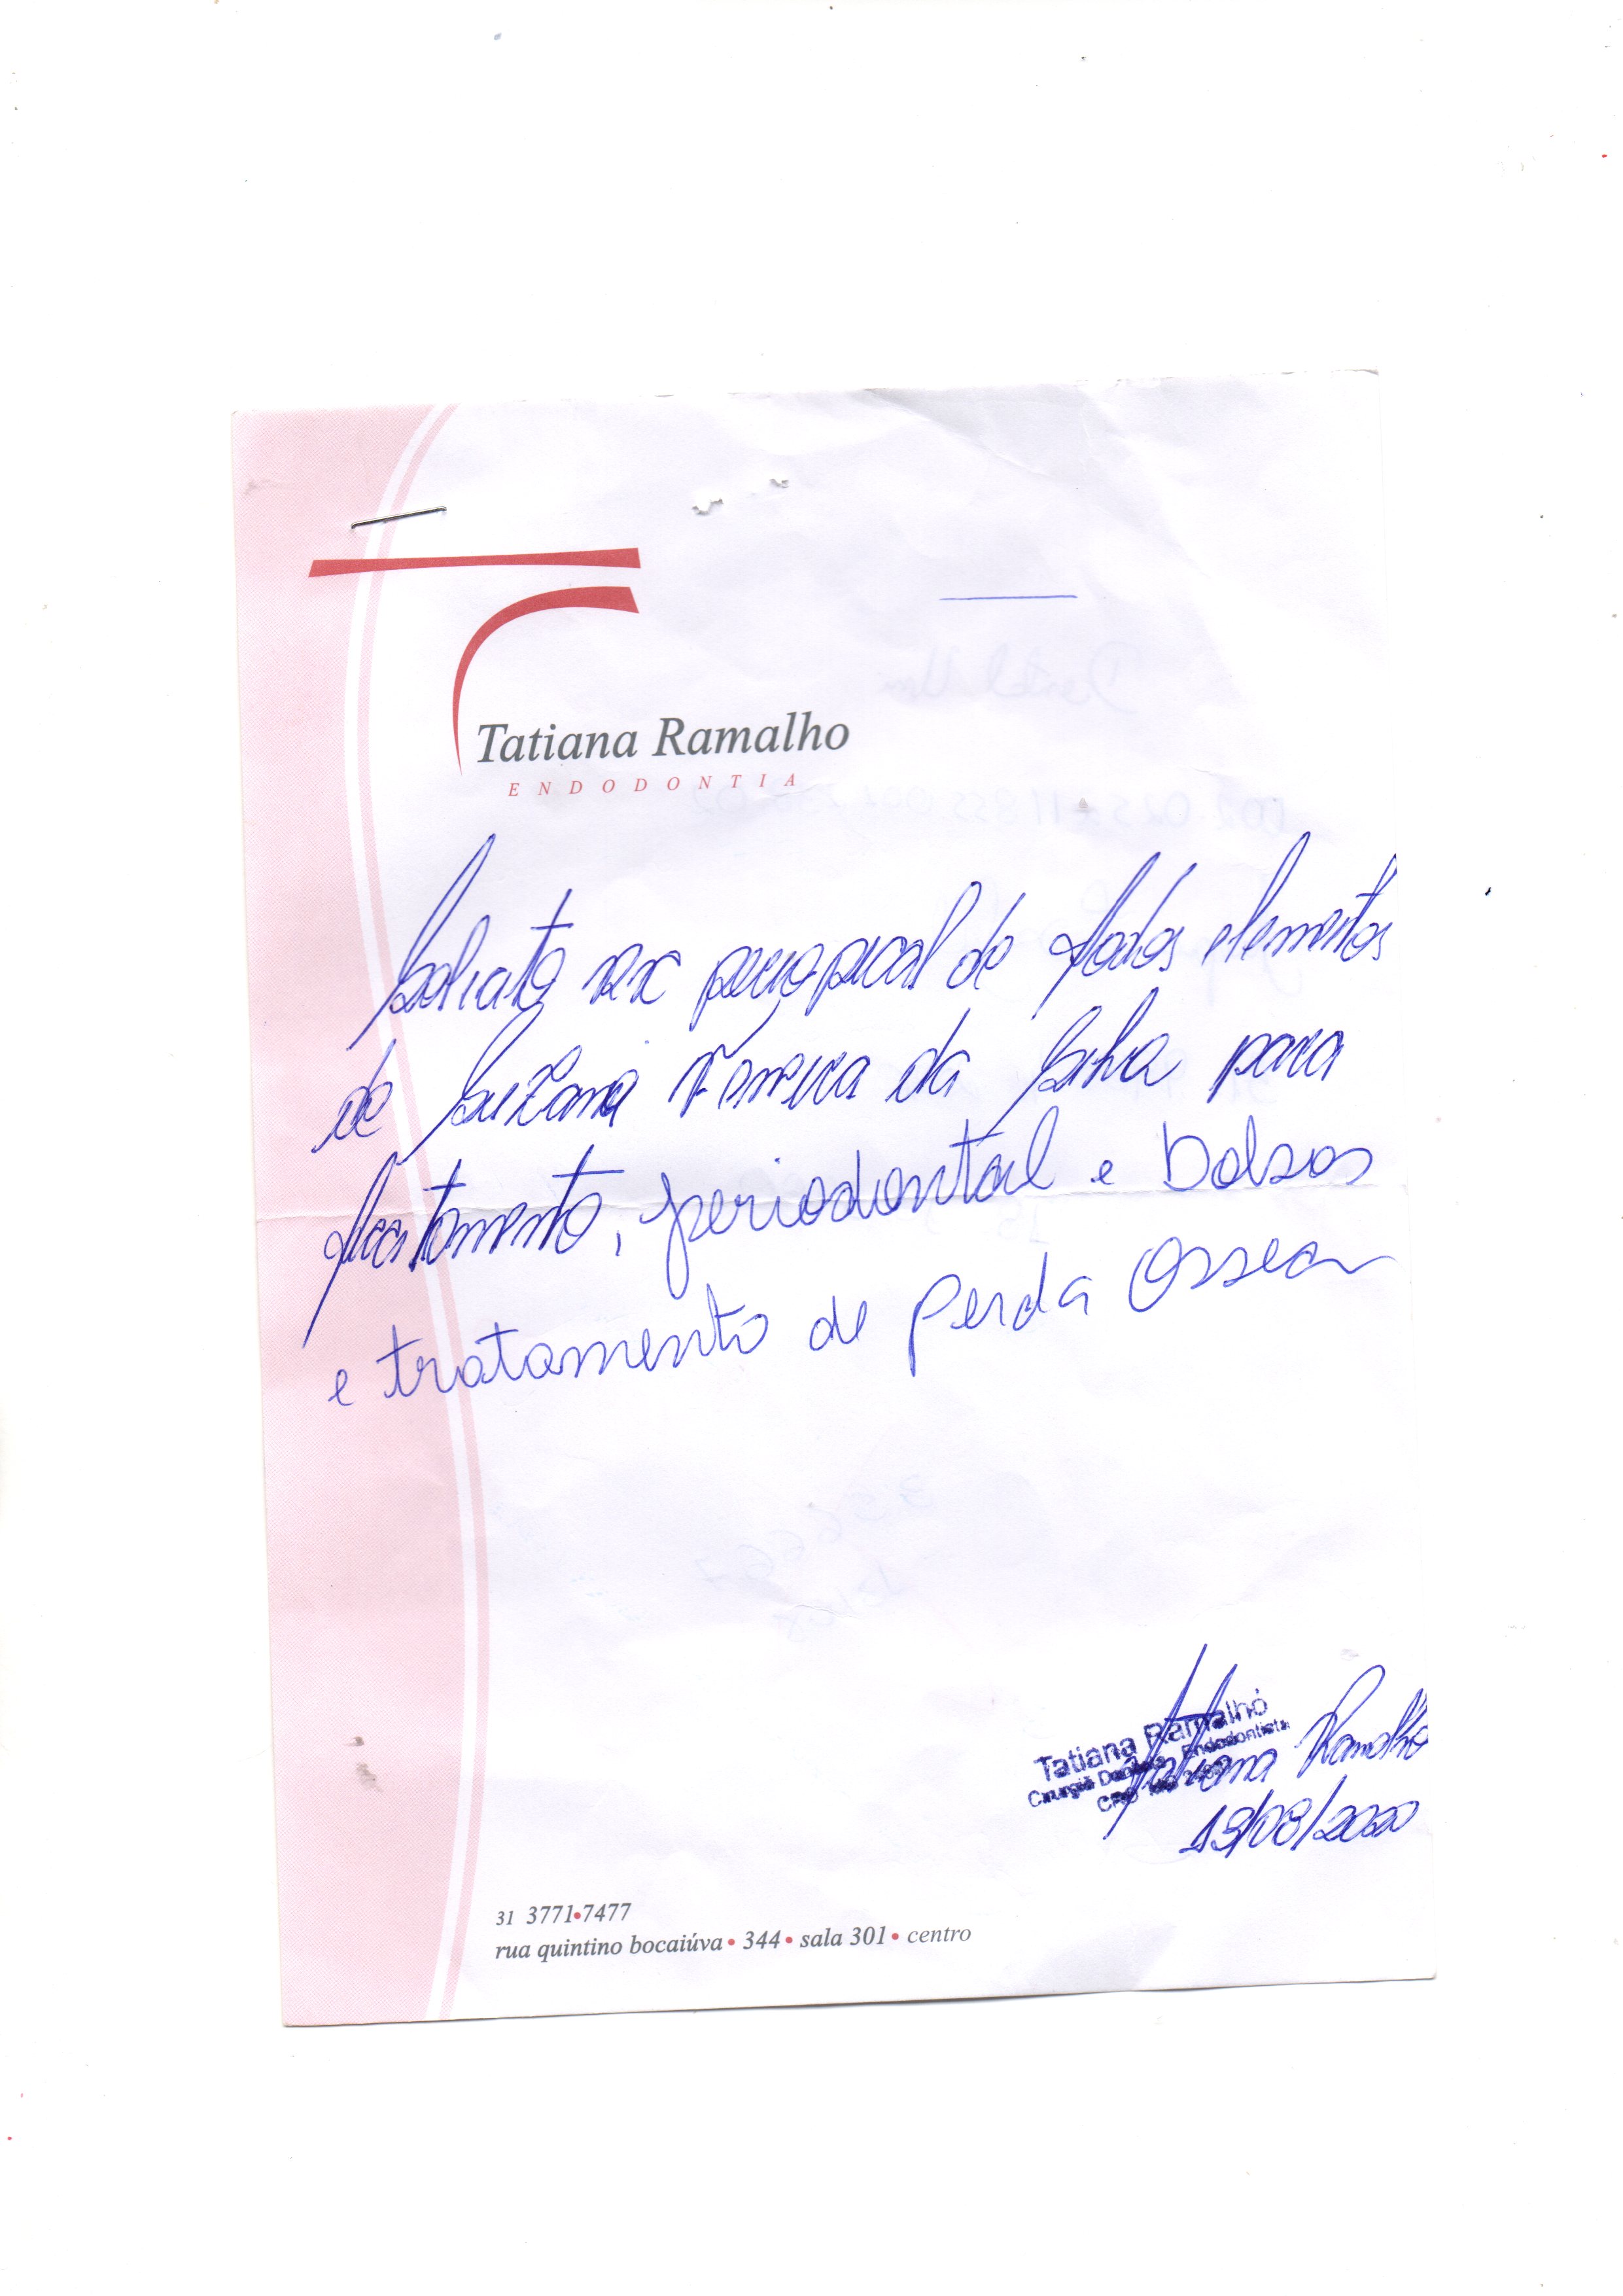 Tatiana Ramalho
ENDODONTIA
Solicito rx periapical de todos elementos
de Suzana Fonseca da Silva para
tratamento, periodontal e bolsas
e tratamento de perda ossea
Tatiana Ramalho
Cirurgiã Dentista Endodontista
CRO MG
Tatiana Ramalho
19/08/2020
31 3771•7477
rua quintino bocaiúva • 344 • sala 301 • centro